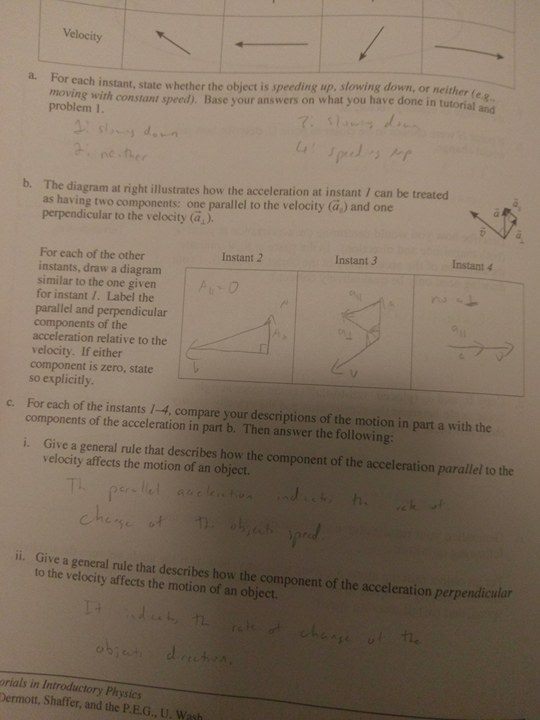 Velocity
a. For each instant, state whether the object is speeding up, slowing down, or neither (e.g.,
moving with constant speed). Base your answers on what you have done in tutorial and
problem 1.
1: slowing down
3. slowing down
2. neither
4: speeding up
b. The diagram at right illustrates how the acceleration at instant 1 can be treated
as having two components: one parallel to the velocity (a∥) and one
perpendicular to the velocity (a⊥).
a a∥
v a⊥
For each of the other
instants, draw a diagram
similar to the one given
for instant 1. Label the
parallel and perpendicular
components of the
acceleration relative to the
velocity. If either
component is zero, state
so explicitly.
Instant 2
Instant 3
Instant 4
A∥=0
a∥
a
a⊥
v
no a⊥
a∥
a v
c. For each of the instants 1–4, compare your descriptions of the motion in part a with the
components of the acceleration in part b. Then answer the following:
i. Give a general rule that describes how the component of the acceleration parallel to the
velocity affects the motion of an object.
The parallel acceleration indicates the rate of
change of the objects speed.
ii. Give a general rule that describes how the component of the acceleration perpendicular
to the velocity affects the motion of an object.
It indicates the rate of change of the
objects direction.
orials in Introductory Physics
Dermott, Shaffer, and the P.E.G., U. Wash